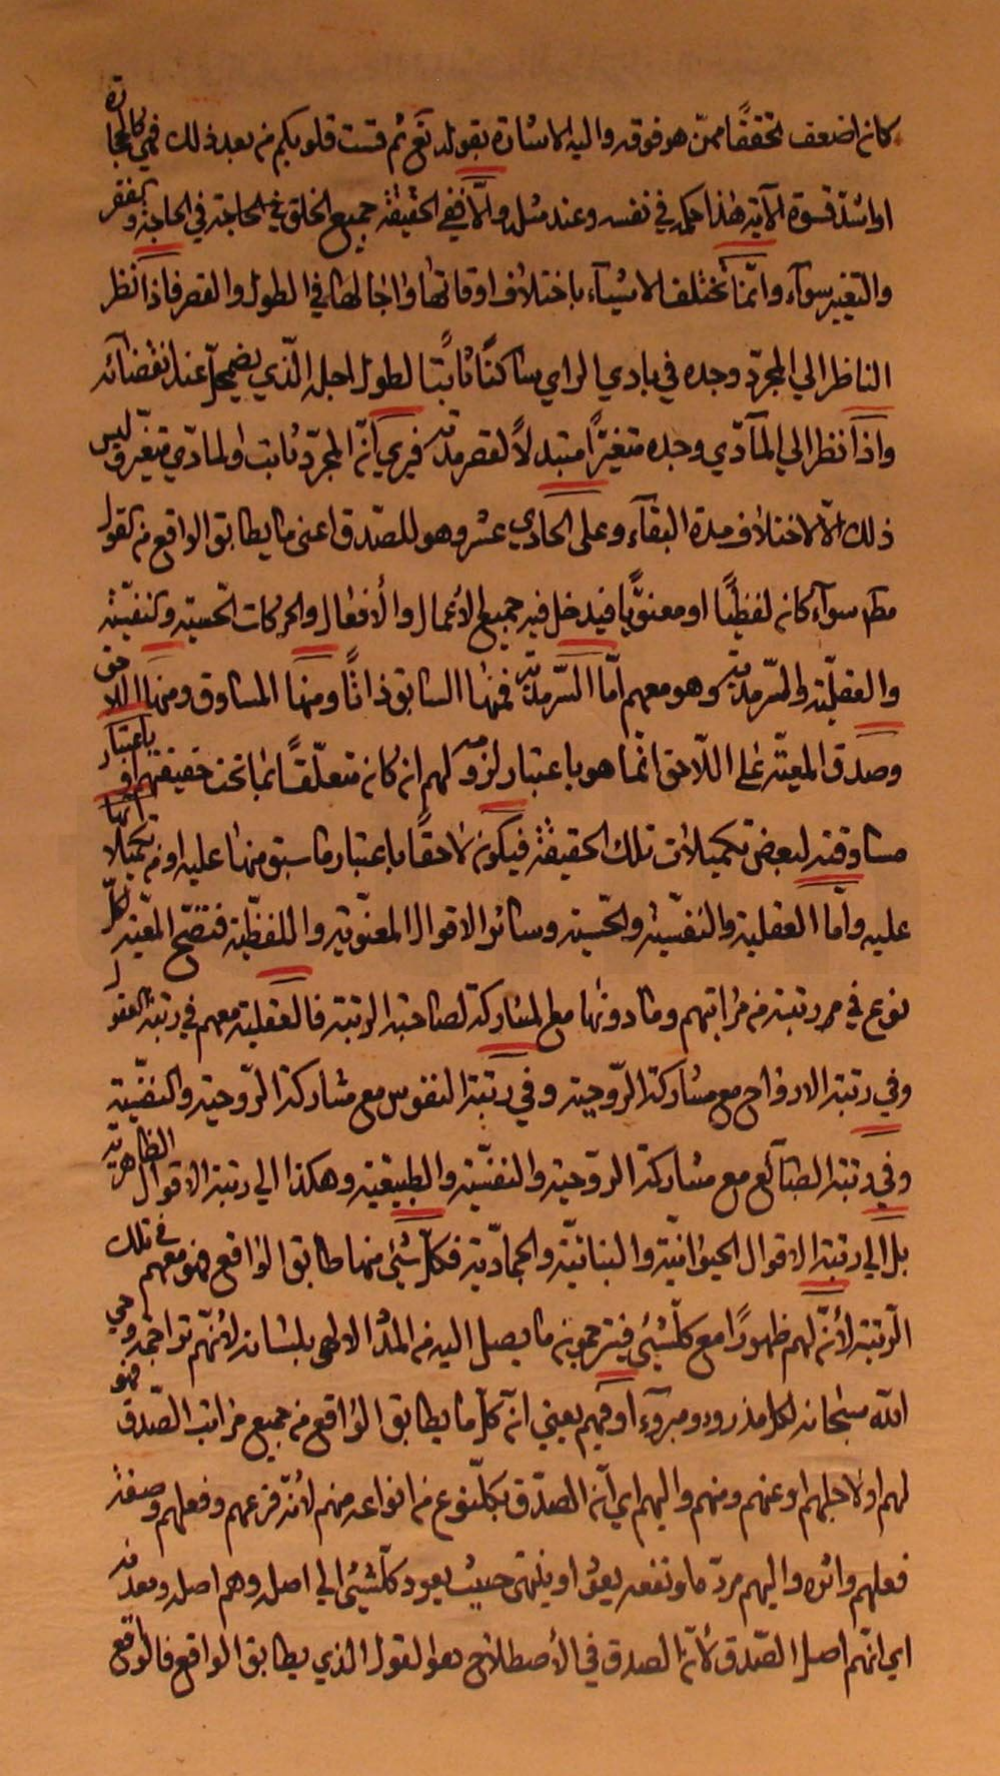 كان اضعف تحققًا ممن هو فوقه واليه الاشارة بقوله تع ثم قست قلوبكم من بعد ذلك فهي كالحجارة
او اشدّ قسوة الآية هذا حكمه في نفسه وعند مثله والّا ففي الحقيقة جميع الخلق في الحاجة في الحاجة والفقر
والتغير سوآء وانّما تختلف الاشيآء باختلاف اوقاتها واجالها في الطول والقصر فاذا نظر
الناظر الي المجرّد وجده في بادي الراي ساكنًا ثابتًا لطول اجله الّذي يضمحلّ عند انقضائه
واذا نظر الي المآدّي وجده متغيّرًا متبدلًا لقصر مدته فيري انّ المجرّد ثابت والمادّي متغيّر وليس
ذلك الّا لاختلاف مدة البقآء وعلى الحادي عشر وهو للصّدق اعنى ما يطابق الواقع من القول
مطلقا سوآء كان لفظيًّا او معنويًّا فيدخل فيه جميع الاعمال والافعال والحركات الحسيّة والنفسيّة
والعقليّة والسّرمديّة وهو معهم امّا السّرمديّة فمنها السابق ذاتًا ومنها المساوق ومنها اللاحق
وصدق المعيّة على اللّاحق انّما هو باعتبار لزومه لهم ان كان متعلّقًا بما تحت حقيقتهم او باعتبار
مساوقته لبعض تكميلات تلك الحقيقة فيكون لاحقًا باعتبار ما سبق منها عليه او من انها تكميلا
عليه وامّا العقلية والنفسيّة والحسّية وسائر الاقوال المعنويّة واللفظيّة فتصحّ المعيّة لكلّ
نوع في مرتبة من مراتبهم وما دونها مع المشاركة لصاحبة الرتبة فالعقلية معهم في رتبة العقول
وفي رتبة الارواح مع مشاركة الرّوحية وفي رتبة النفوس مع مشاركة الرّوحية والنفسيّة
وفي رتبة الطبآئع مع مشاركة الروّحية والنفسيّة والطبيعية وهكذا الي رتبة الاقوال الظاهريّة
بل الي رتبة الاقوال الحيوانيّة والنباتيّة والجماديّة فكلّ شئ منها طابق الواقع فهو معهم في تلك
الرّتبة لأنّ لهم ظهورًا مع كلّ شئ فيترجمون ما يصل اليه من المدد الالهي بلسانه لأنّهم تراجمة وحي
الله سبحانه لكل مذروء ومبروء او فيهم يعني انّ كلّ ما يطابق الواقع من جميع مراتب الصّدق فهو
لهم او لاجلهم او عنهم ومنهم واليهم اي انّ الصدّق بكلّ نوع من انواعه منهم لانّه فرعهم وفعلهم وصفة
فعلهم واثره واليهم مردّ ما ونفعه يعود او ينتهى حيث يعود كلّ شئ الي اصله وهم اصله ومعدنه
اي انّهم اصل الصّدق لانّ الصدق في الاصطلاح هو القول الذي يطابق الواقع فالواقع